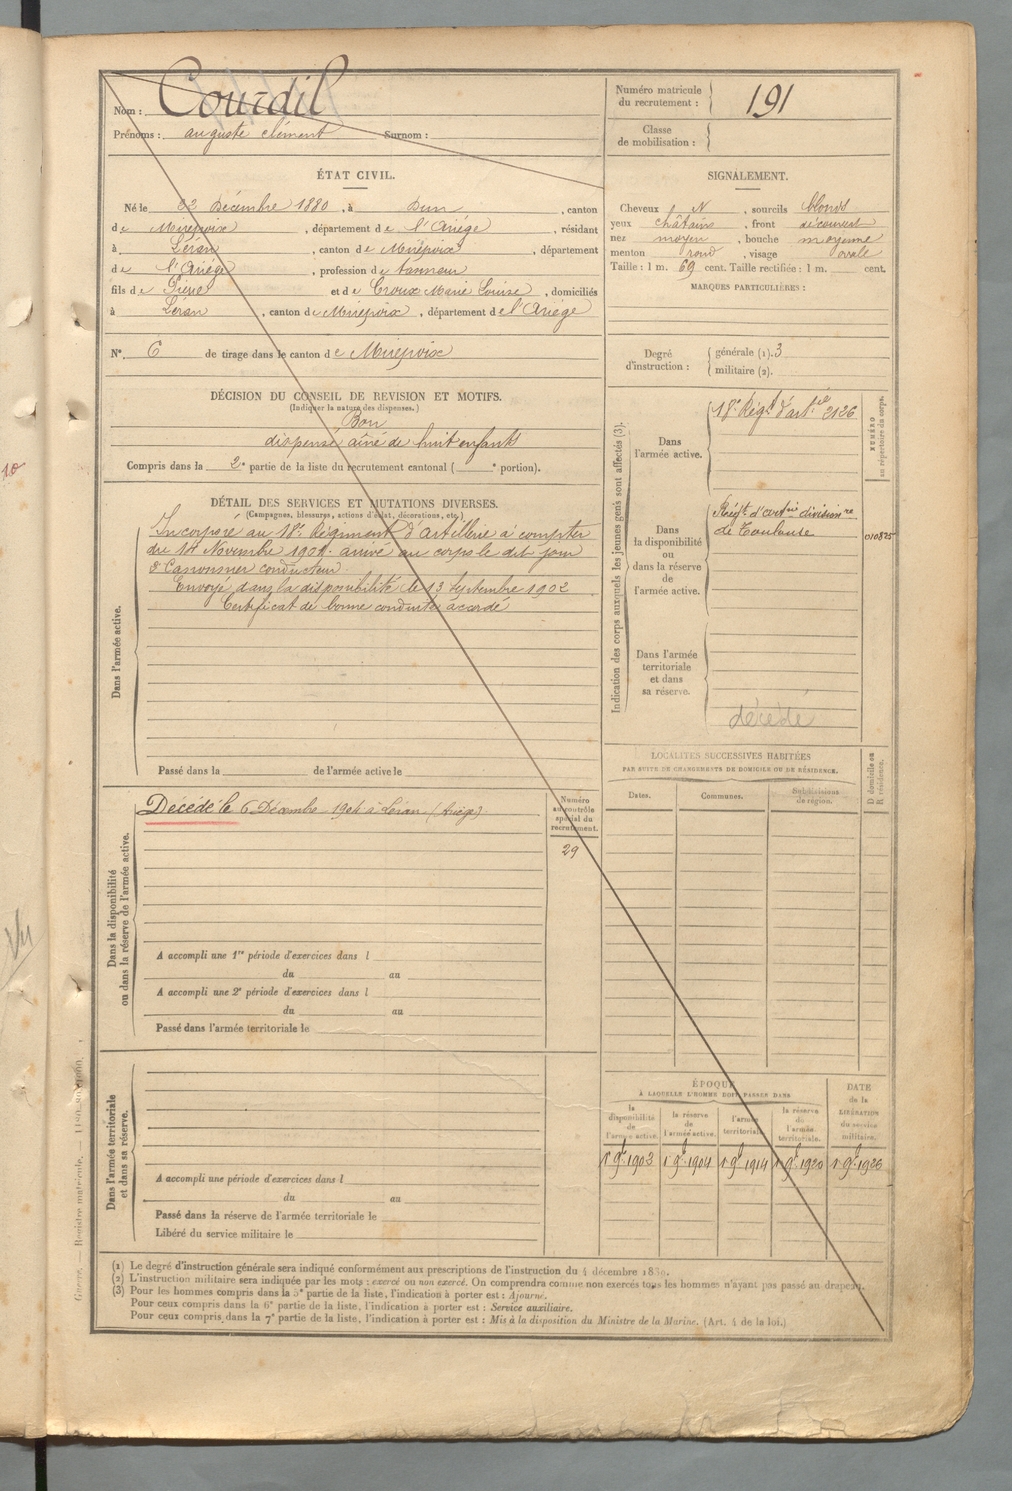 Nom : Courdil
Prénoms : auguste clément Surnom :
Numéro matricule du recrutement : 191
Classe de mobilisation :
ÉTAT CIVIL.
Né le 22 Décembre 1880, à Dun, canton
de Mirepoix, département de l'Ariège, résidant
à Léran, canton de Mirepoix, département
de l'Ariège, profession de tanneur
fils de Pierre et de Croux Marie Louise, domiciliés
à Léran, canton de Mirepoix, département de l'Ariège
N° 6 de tirage dans le canton de Mirepoix
SIGNALEMENT.
Cheveux N, sourcils blonds
yeux châtains, front découvert
nez moyen, bouche moyenne
menton rond, visage ovale
Taille : 1 m. 69 cent. Taille rectifiée : 1 m. cent.
MARQUES PARTICULIÈRES :
Degré d'instruction : générale (1). 3
militaire (2).
DÉCISION DU CONSEIL DE REVISION ET MOTIFS.
(Indiquer la nature des dispenses.)
Bon
dispensé aîné de huit enfants
Compris dans la 2e partie de la liste du recrutement cantonal ( e portion).
DÉTAIL DES SERVICES ET MUTATIONS DIVERSES.
(Campagnes, blessures, actions d'éclat, décorations, etc.)
Dans l'armée active.
Incorporé au 18e Régiment d'Artillerie à compter
du 14 Novembre 1901. arrivé au corps le dit jour
2e Canonnier conducteur
Envoyé dans la disponibilité le 13 Septembre 1902
Certificat de bonne conduite accordé
Passé dans la de l'armée active le
Indication des corps auxquels les jeunes gens sont affectés (3).
Dans l'armée active.
18e Régt d'artie 2126
NUMÉRO au répertoire du corps.
Dans la disponibilité ou dans la réserve de l'armée active.
Régt d'artie divisionre
de Toulouse
010825
Dans l'armée territoriale et dans sa réserve.
décédé
LOCALITÉS SUCCESSIVES HABITÉES
PAR SUITE DE CHANGEMENTS DE DOMICILE OU DE RÉSIDENCE.
Dates. Communes. Subdivisions de région.
D domicile ou R résidence.
Dans la disponibilité ou dans la réserve de l'armée active.
Décédé le 6 Décembre 1904 à Léran (Ariège)
Numéro au contrôle spécial du recrutement.
29
A accompli une 1re période d'exercices dans l
du au
A accompli une 2e période d'exercices dans l
du au
Passé dans l'armée territoriale le
Dans l'armée territoriale et dans sa réserve.
A accompli une période d'exercices dans l
du au
Passé dans la réserve de l'armée territoriale le
Libéré du service militaire le
ÉPOQUE
À LAQUELLE L'HOMME DOIT PASSER DANS
la disponibilité de l'armée active.
la réserve de l'armée active.
l'armée territoriale.
la réserve de l'armée territoriale.
DATE de la LIBÉRATION du service militaire.
1 9bre 1903 1 9bre 1904 1 9bre 1914 1 9bre 1920 1 9bre 1926
(1) Le degré d'instruction générale sera indiqué conformément aux prescriptions de l'instruction du 4 décembre 1889.
(2) L'instruction militaire sera indiquée par les mots : exercé ou non exercé. On comprendra comme non exercés tous les hommes n'ayant pas passé au drapeau.
(3) Pour les hommes compris dans la 5e partie de la liste, l'indication à porter est : Ajourné.
Pour ceux compris dans la 6e partie de la liste, l'indication à porter est : Service auxiliaire.
Pour ceux compris dans la 7e partie de la liste, l'indication à porter est : Mis à la disposition du Ministre de la Marine. (Art. 4 de la loi.)